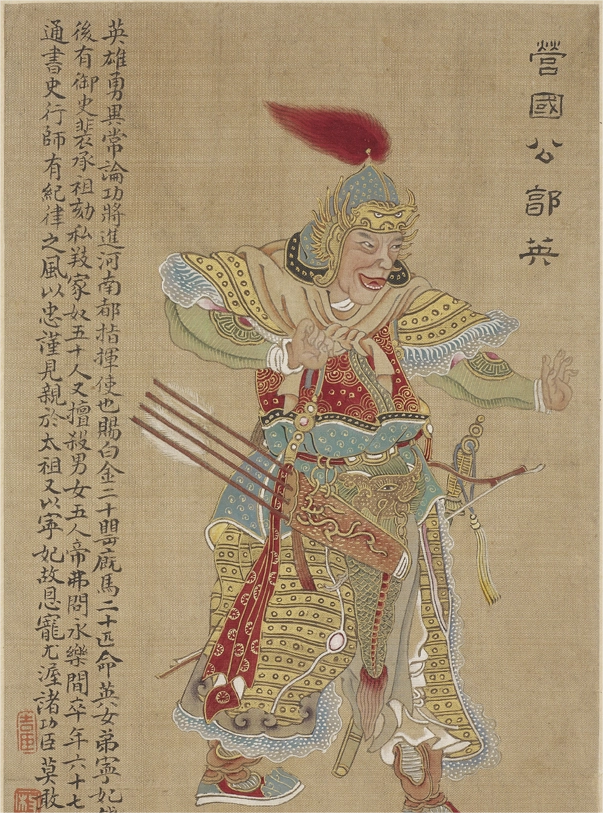 營國公郭英
英雄勇異常論功將進河南都指揮使也賜白金二十罌廐馬二十匹命英女弟寧妃
後有御史裴承祖劾私𢼝家奴五十人又擅殺男女五人帝弗問永樂間卒年六十七
通書史行師有紀律之風以忠謹見親於太祖又以寧妃故恩寵尤渥諸功臣莫敢